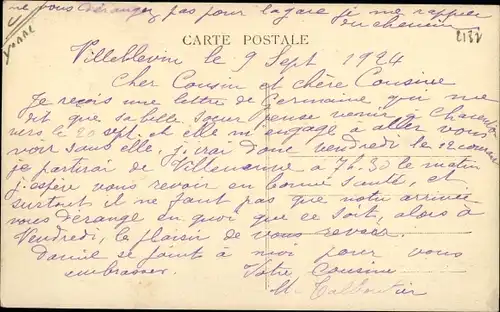 ne vous dérangez pas pour la gare je me rappelle
du chemin
Yonne
2137
CARTE POSTALE
Villeblevin le 9 Sept 1924
Cher Cousin et chère Cousine
Je reçois une lettre de Germaine qui me
dit que sa belle soeur pense venir à
vers le 20 sept. et elle m'engage a aller vous
voir sans elle, j'irai donc vendredi le 12 courant
je partirai de à 7h.30 le matin
j'espère vous revoir en bonne santé, et
surtout il ne faut pas que notre arrivée
vous dérange en quoi que ce soit, alors à
Vendredi, le plaisir de vous revoir.
Daniel se joint à moi pour vous
embrasser. Votre Cousine
M.